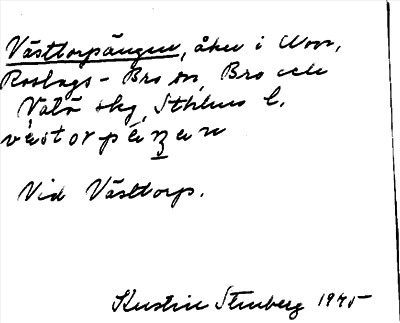 Västtorpängen, åker i Norr,
Roslags-Bro sn, Bro och
Vätö skg, Sthlms l.
väst or pä ŋ an
Vid Västtorp.
Kerstin Stenberg 1945